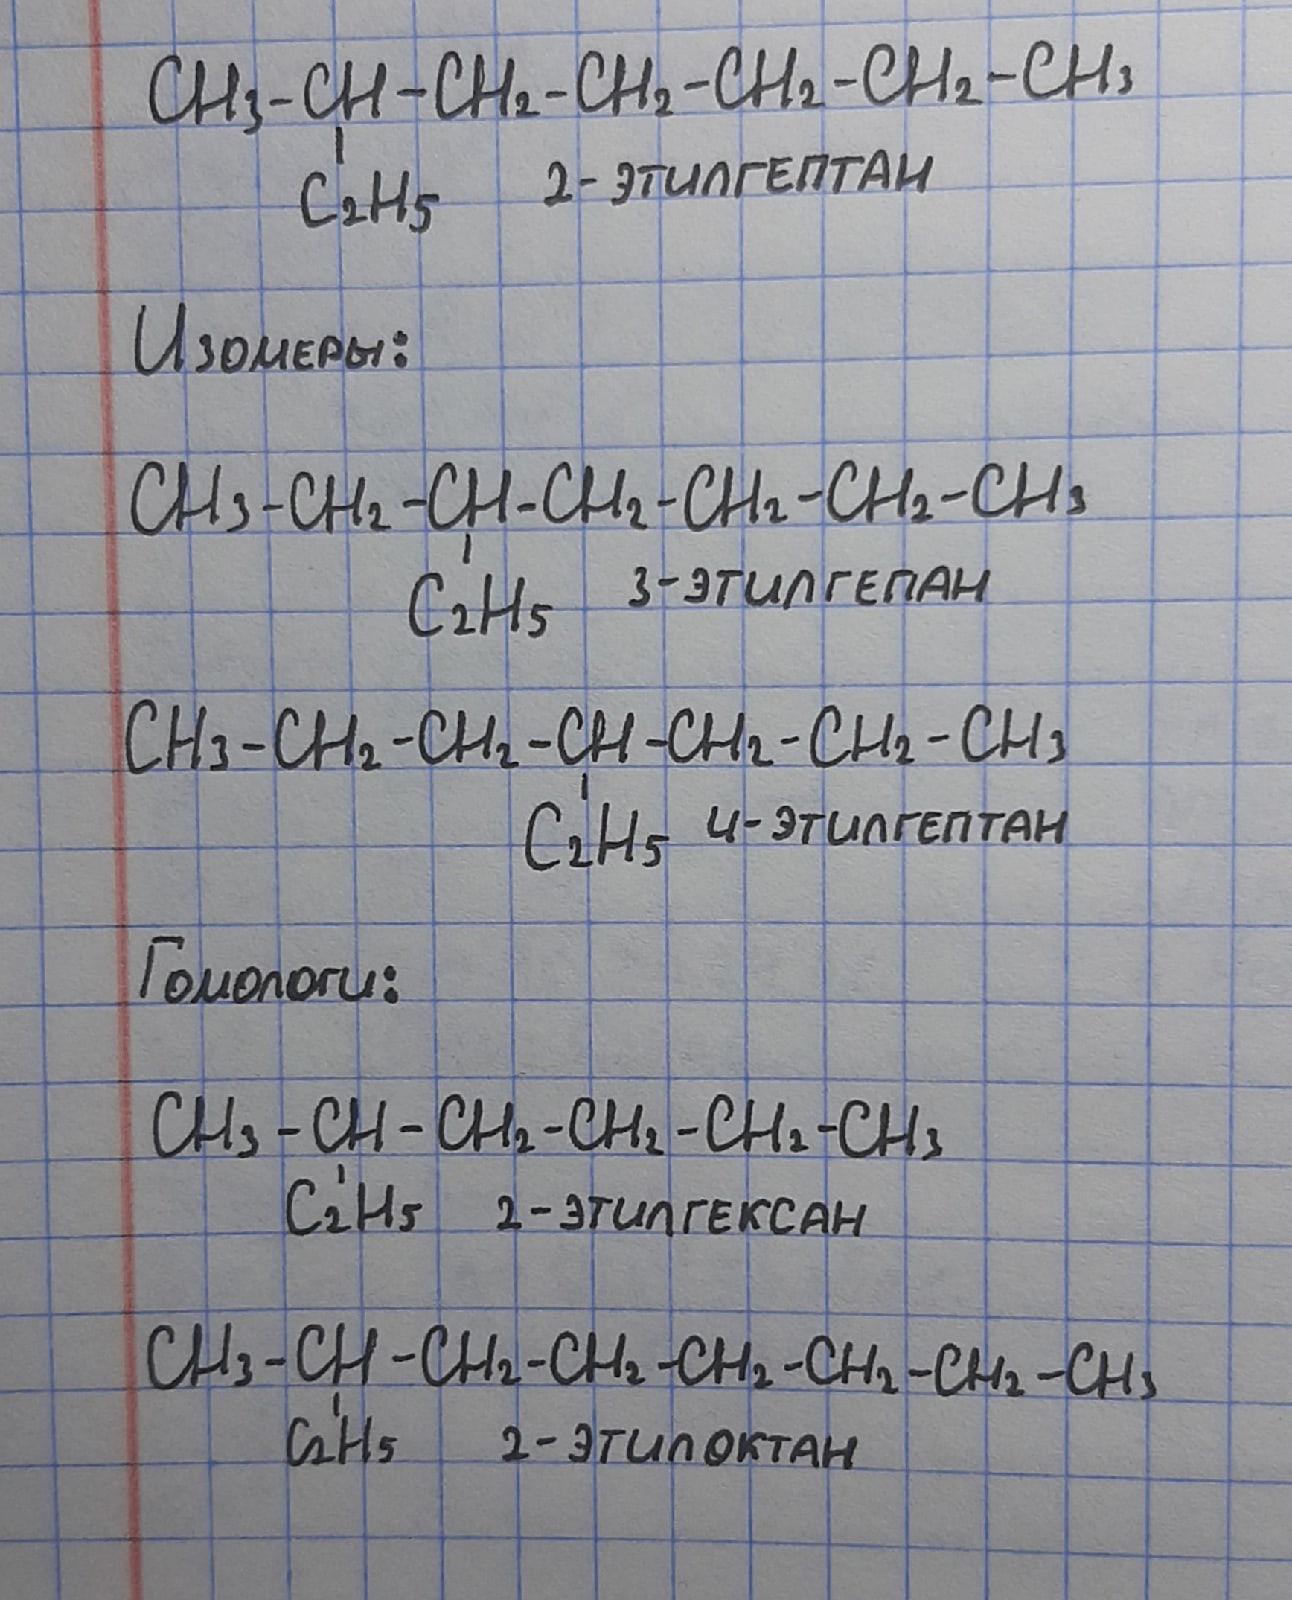 CH3-CH-CH2-CH2-CH2-CH2-CH3
C2H5 2-ЭТИЛГЕПТАН
Изомеры:
CH3-CH2-CH-CH2-CH2-CH2-CH3
C2H5 3-ЭТИЛГЕПАН
CH3-CH2-CH2-CH-CH2-CH2-CH3
C2H5 4-ЭТИЛГЕПТАН
Гомологи:
CH3-CH-CH2-CH2-CH2-CH3
C2H5 2-ЭТИЛГЕКСАН
CH3-CH-CH2-CH2-CH2-CH2-CH2-CH3
C2H5 2-ЭТИЛОКТАН